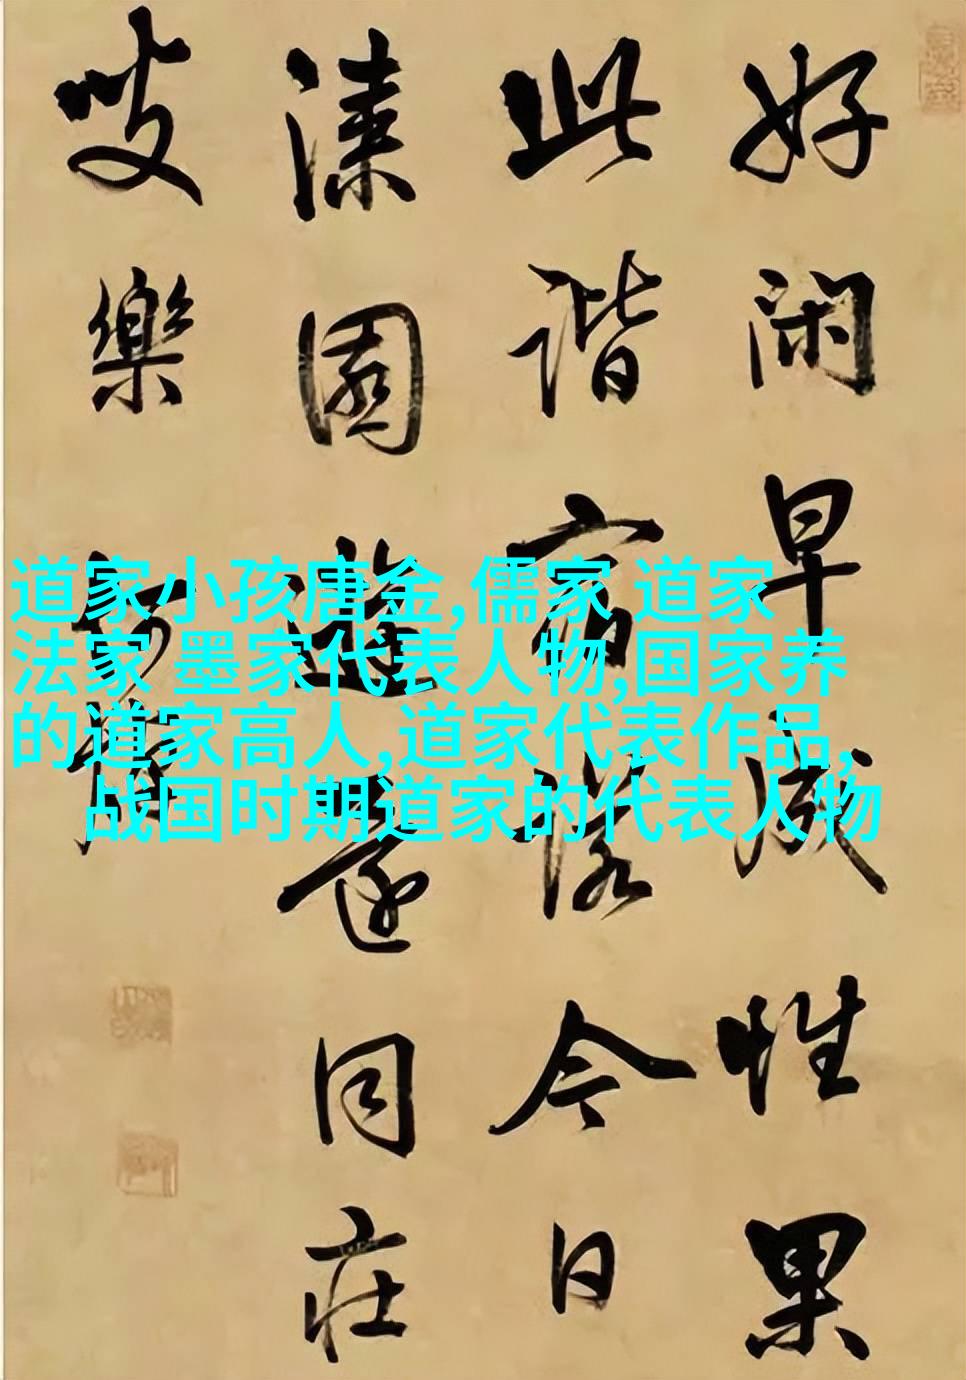 好閑早成性果
此諧宿諾今日
漆園遊還同庄
叟樂
道家小孩唐金,儒家 道家
法家 墨家代表人物,国家养
的道家高人,道家代表作品,
战国时期道家的代表人物